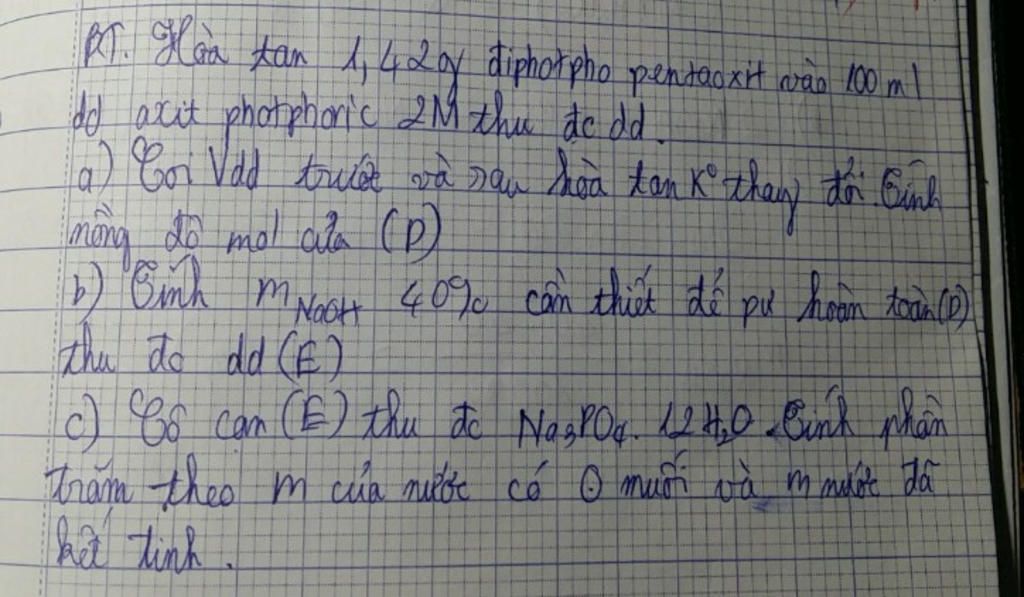 BT. Hòa tan 1,42g điphotpho pentaoxit vào 100 ml
dd axit photphoric 2M thu đc dd
a) Coi Vdd trước và sau hòa tan K° thay đổi. Tính
nồng độ mol của (D)
b) Tính mNaOH 40% cần thiết để pư hoàn toàn (D)
thu đc dd (E)
c) Cô cạn (E) thu đc Na3PO4. 12H2O. Tính phần
trăm theo m của nước có ⊙ muối và m nước đã
kết tinh.